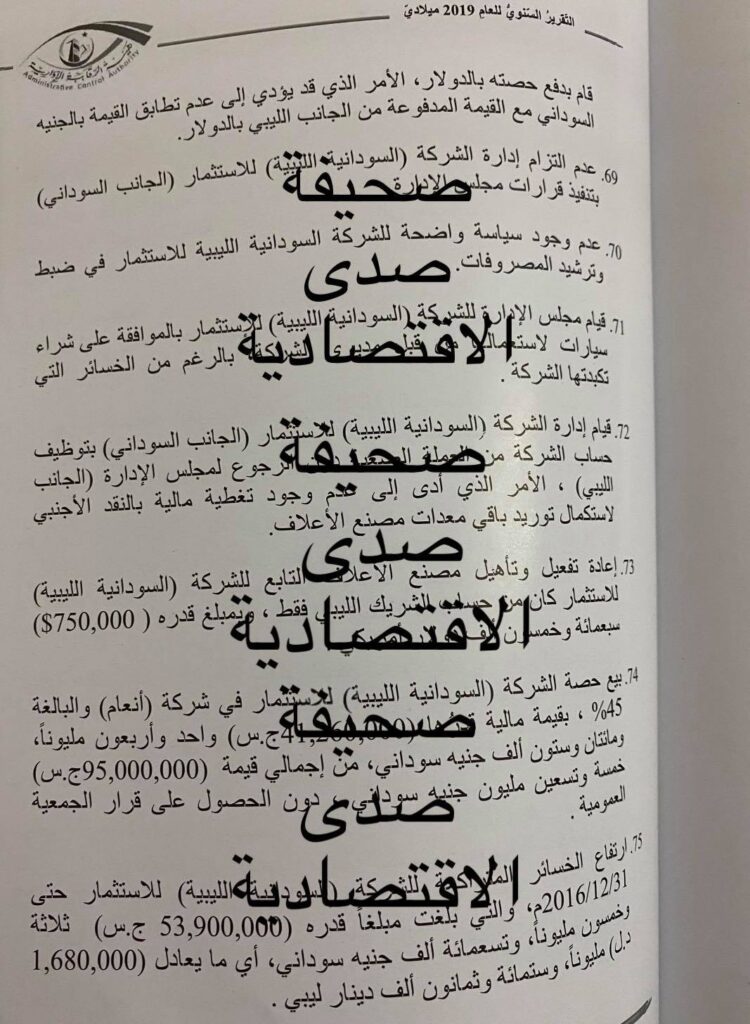 التقرير السنوي للعام 2019 ميلادي
هيئة الرقابة الإدارية
Administrative Control Authority
قام بدفع حصته بالدولار، الأمر الذي قد يؤدي إلى عدم تطابق القيمة بالجنيه
السوداني مع القيمة المدفوعة من الجانب الليبي بالدولار.
69. عدم التزام إدارة الشركة (السودانية الليبية) للاستثمار (الجانب السوداني)
بتنفيذ قرارات مجلس الإدارة
70. عدم وجود سياسة واضحة للشركة السودانية الليبية للاستثمار في ضبط
وترشيد المصروفات.
71. قيام مجلس الإدارة للشركة (السودانية الليبية) للاستثمار بالموافقة على شراء
سيارات لاستعمالها من قبل مديري الشركة بالرغم من الخسائر التي
تكبدتها الشركة .
72. قيام إدارة الشركة (السودانية الليبية) للاستثمار (الجانب السوداني) بتوظيف
حساب الشركة من العملة الصعبة دون الرجوع لمجلس الإدارة (الجانب
الليبي) ، الأمر الذي أدى إلى عدم وجود تغطية مالية بالنقد الأجنبي
لاستكمال توريد باقي معدات مصنع الأعلاف.
73. إعادة تفعيل وتأهيل مصنع الأعلاف التابع للشركة (السودانية الليبية)
للاستثمار كان من حساب الشريك الليبي فقط ، وبمبلغ قدره ( 750,000$)
سبعمائة وخمسون ألف
74. بيع حصة الشركة (السودانية الليبية) للاستثمار في شركة (أنعام) والبالغة
45% ، بقيمة مالية (41,260,000ج.س) واحد وأربعون مليوناً،
ومائتان وستون ألف جنيه سوداني، من إجمالي قيمة (95,000,000ج.س)
خمسة وتسعين مليون جنيه سوداني ، دون الحصول على قرار الجمعية
العمومية .
75. ارتفاع الخسائر المتراكمة للشركة (السودانية الليبية) للاستثمار حتى
2016/12/31م، والتي بلغت مبلغاً قدره (53,900,000 ج.س) ثلاثة
وخمسون مليوناً، وتسعمائة ألف جنيه سوداني، أي ما يعادل (1,680,000
د.ل) مليوناً، وستمائة وثمانون ألف دينار ليبي .
صحيفة
صدى
الاقتصادية
صحيفة
صدى
الاقتصادية
صحيفة
صدى
الاقتصادية